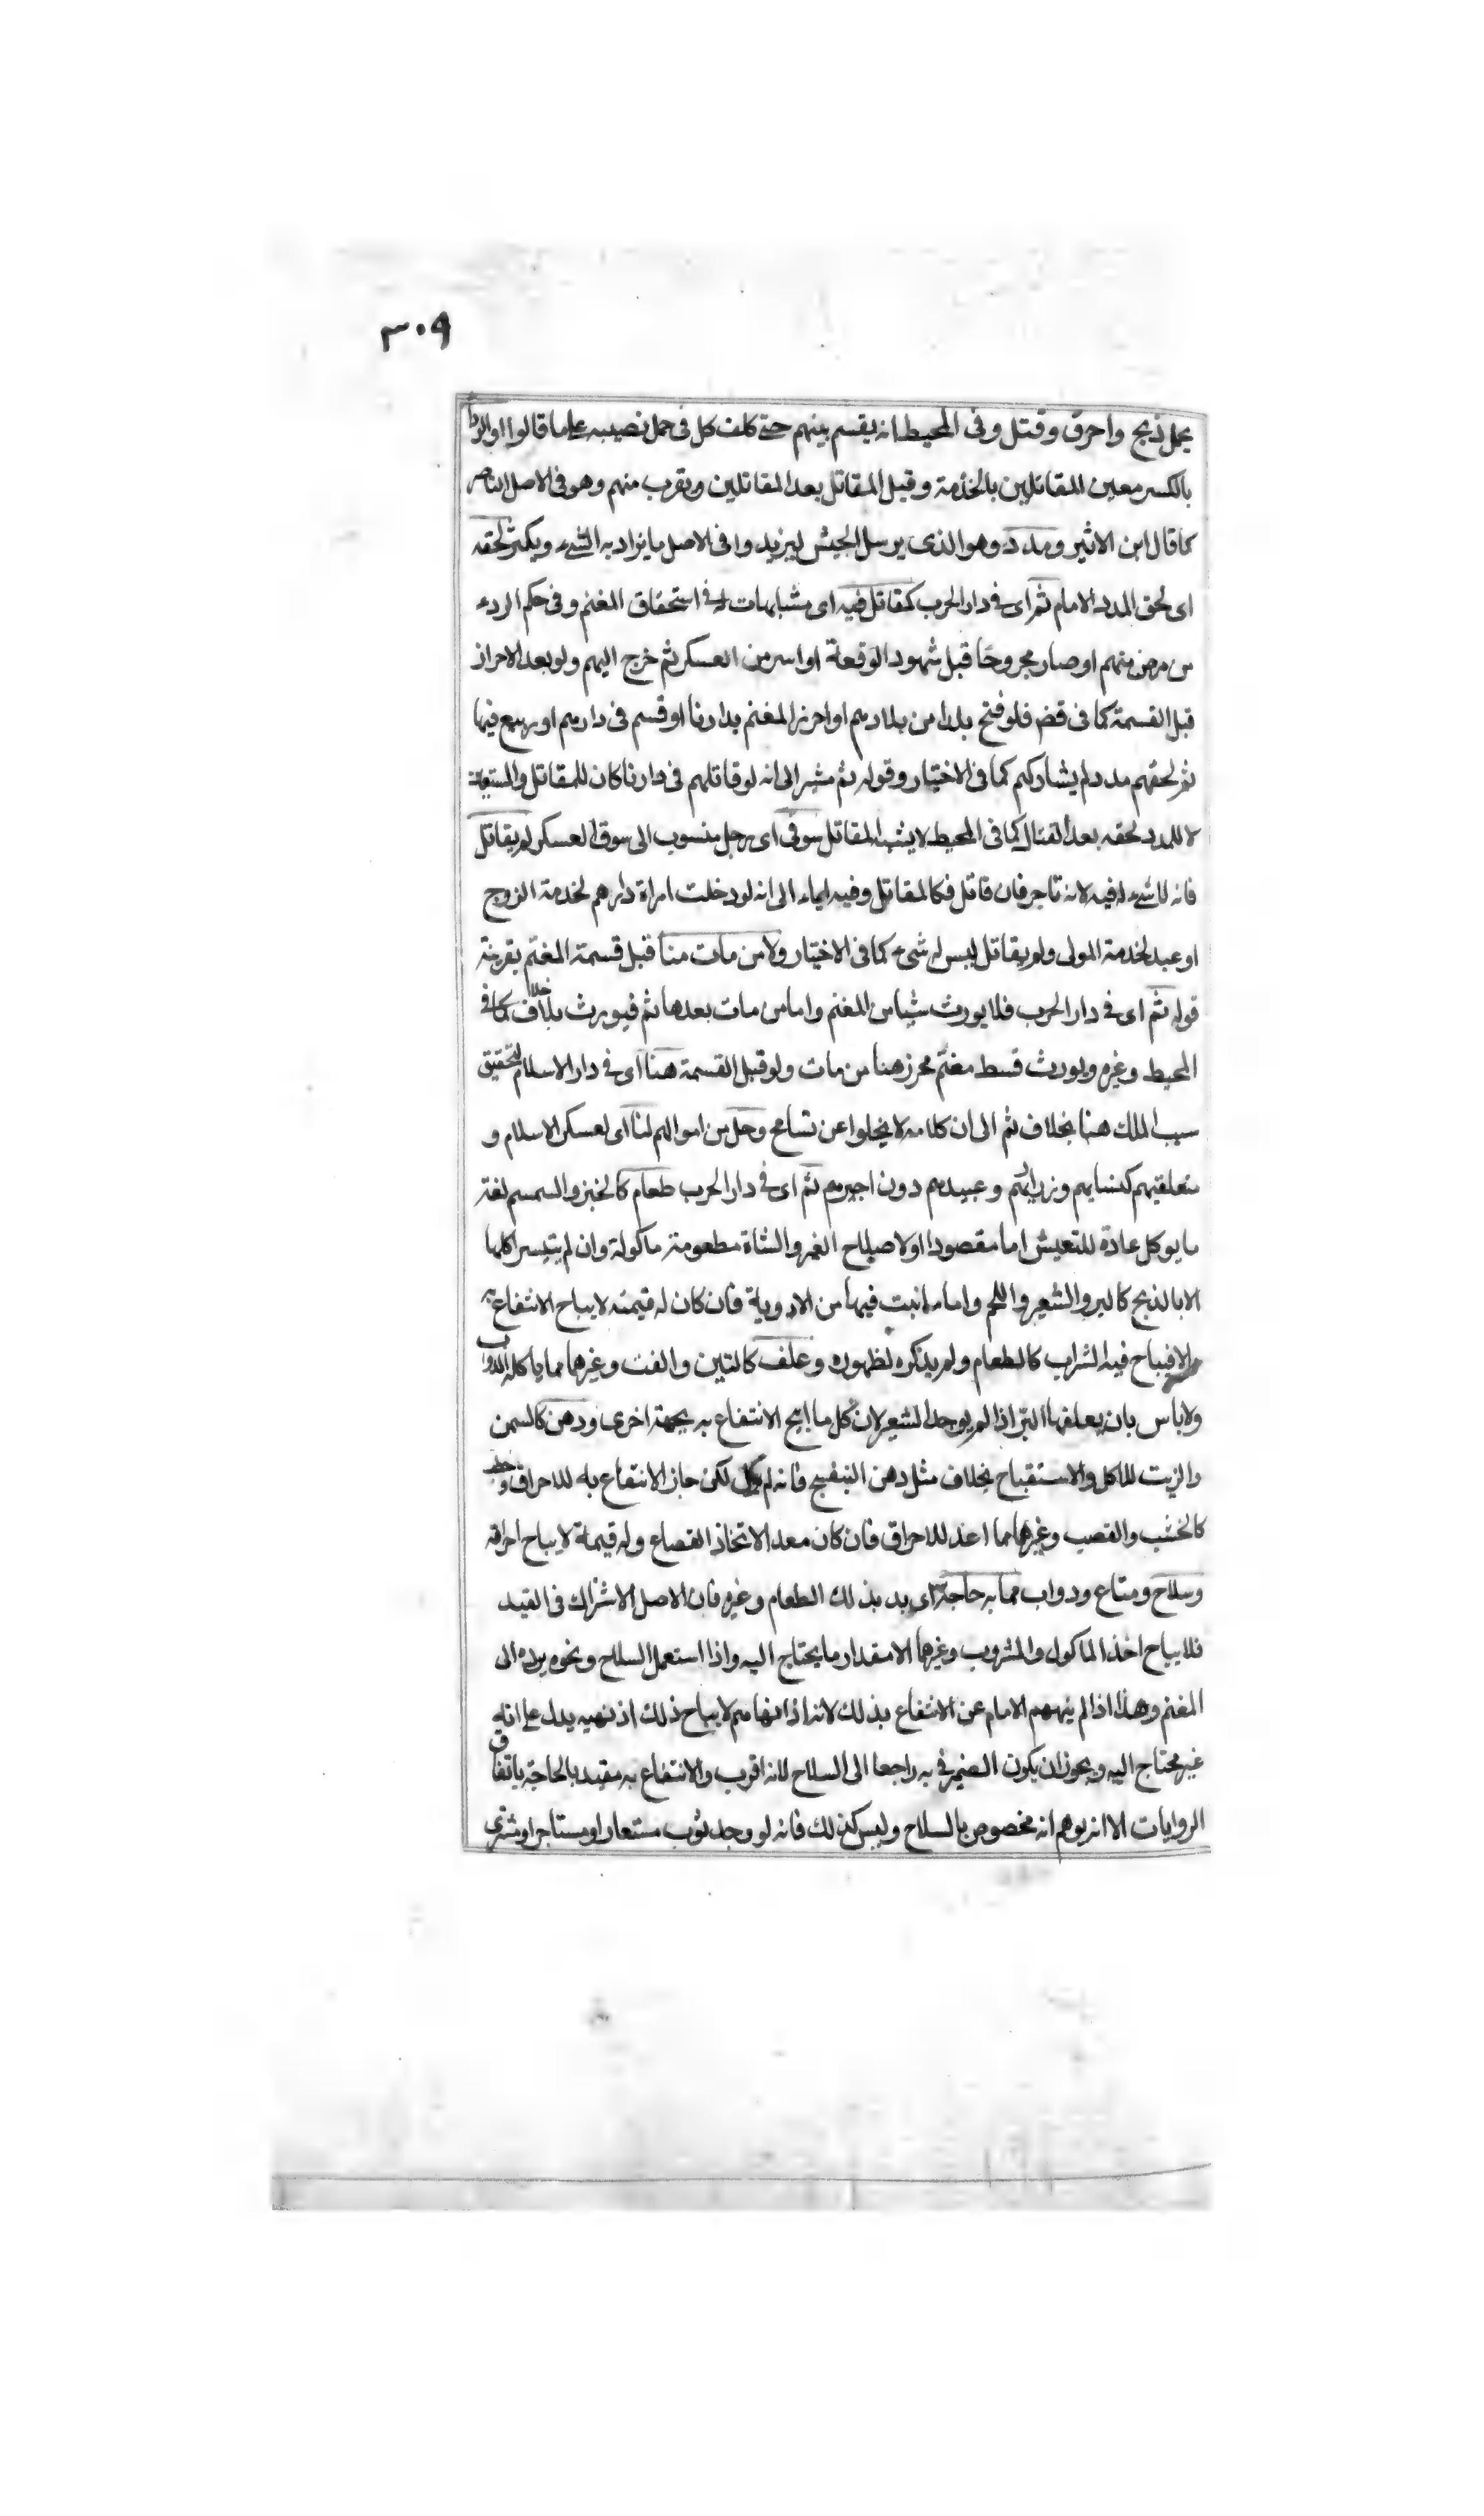 ٣٠٩
يحمل ذبح واحرق وقتل وفى المحيط انه يقسم بينهم حتى كلف كل فى حمل نصيبه على ما قالوا او الردء
بالكسر معين المقاتلين بالخدمة وقيل المقاتل بعد المقاتلين ويقرب منهم وهو فى الاصل الناصر
كما قال ابن الاثير ومدد وهو الذى يرسل الجيش ليزيدوا فى الاصل ما يزاد به الشىء ويكثر لحقه
اى لحق المدد الامام ثم اى فى دار الحرب كمقاتل فيه اى مشابهات له فى استحقاق المغنم وفى حكم الردء
من مرض منهم او صار مجروحا قبل شهود الوقعة او اسر من العسكر ثم خرج اليهم ولو بعد الاحراز
قبل القسمة كما فى قض فلو فتح بلدا من بلادهم او احرز المغنم بدارنا او قسم فى دارهم او بيع فيها
ثم لحقهم مدد لم يشاركهم كما فى الاختيار وقوله ثم مشير الى انه لو قاتلهم فى دارنا كان للمقاتل والمستعد
لا للمدد لحقه بعد القتال كما فى المحيط لا يشبه المقاتل سوقى اى رجل منسوب الى سوق العسكر لم يقاتل
فانه لا شىء له فيه لانه تاجر فان قاتل فكالمقاتل وفيه ايماء الى انه لو دخلت امراة دارهم لخدمة الزوج
او عبد لخدمة المولى ولم يقاتل ليس له شىء كما فى الاختيار ولا من مات منا قبل قسمة المغنم بقرينة
قوله ثم اى فى دار الحرب فلا يورث شيا من المغنم واما من مات بعدها ثم فيورث بلا خلاف كما فى
المحيط وغيره ويورث قسط مغنم محرز هنا من مات ولو قبل القسمة هنا اى فى دار الاسلام لتحقيق
سبب الملك هنا بخلاف ثم الى ان كلامه لا يخلوا عن تسامح وحل من اموالهم لنا اى لعسكر الاسلام و
متعلقيهم كنسايهم وذراريهم وعبيدهم دون اجيرهم ثم اى فى دار الحرب طعام كالخبز والسمسم لغة
ما يوكل عادة للتعيش اما مقصودا او لاصلاح الغير والشاة مطعومة ماكولة وان لم يتيسر اكلها
الا بالذبح كالبر والشعير واللحم واما ما نبت فيها من الادوية فان كان له قيمته لا يباح الانتفاع به
والا فيباح فيه الشراب كالطعام ولم يذكره لظهوره وعلف كالتين والقت وغيرهما مما ياكله الدواب
ولا باس بان يعلفها البر اذا لم يوجد الشعير لان كل ما ابيح الانتفاع به بجهة اخرى ودهن كالسمن
والزيت للاكل والاستقباح بخلاف مثل دهن البنفسج فانه لم يوكل لكن جاز الانتفاع به للاحراق وحطب
كالخشب والقصب وغيرهما مما اعد للاحراق فان كان معدا لاتخاذ القصاع وله قيمة لا يباح احراقه
وسلاح ومتاع ودواب مما به حاجة اى بد بذلك الطعام وغيره فان الاصل الاشتراك فى القيد
فلا يباح اخذ الماكول والمشروب وغيرهما الا مقدار ما يحتاج اليه واذا استعمل السلاح ونحوه يرده الى
المغنم وهذا اذا لم ينههم الامام عن الانتفاع بذلك لانه اذا نهاهم لا يباح ذلك اذ نهيه يدل على انه
غير محتاج اليه ويجوز ان يكون الضمير فى به راجعا الى السلاح لانه اقرب والانتفاع به مقيد بالحاجة باتفاق
الروايات الا انه يوهم انه مخصوص بالسلاح وليس كذلك فانه لو وجد ثوب مستعار او مستاجر او مشترى